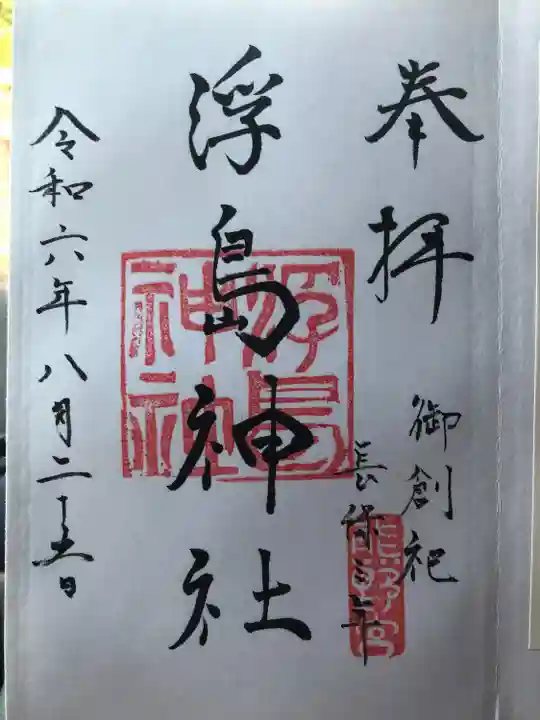 奉拝
御創祀
長保三年
熊野宮
浮島神社
浮島神社
令和六年八月二十五日